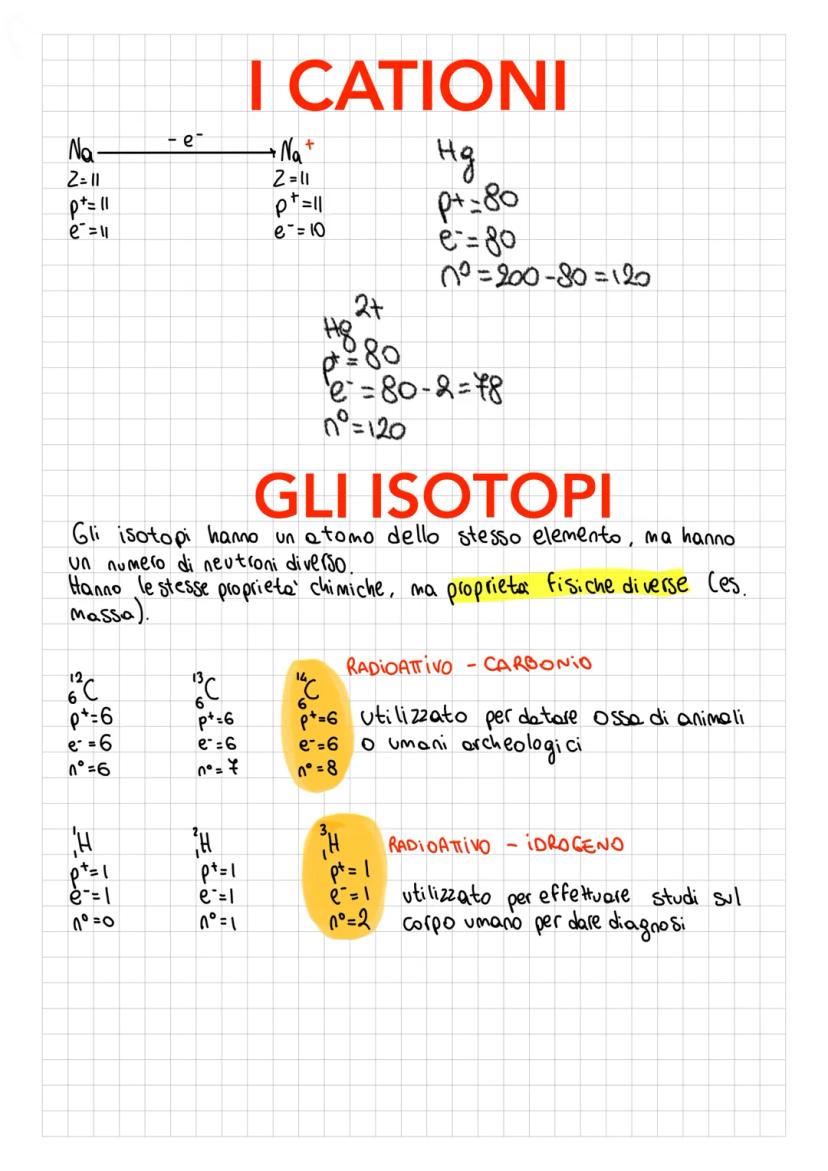 I CATIONI
Na - e⁻ → Na⁺
Z=11 Z=11
p⁺=11 p⁺=11
e⁻=11 e⁻=10
Hg
p⁺=80
e⁻=80
n⁰=200-80=120
Hg²⁺
p⁺=80
e⁻=80-2=78
n⁰=120
GLI ISOTOPI
Gli isotopi hanno un atomo dello stesso elemento, ma hanno
un numero di neutroni diverso.
Hanno le stesse proprietà chimiche, ma proprietà fisiche diverse (es.
massa).
RADIOATTIVO - CARBONIO
¹²₆C ¹³₆C ¹⁴₆C
p⁺=6 p⁺=6 p⁺=6 utilizzato per datare ossa di animali
e⁻=6 e⁻=6 e⁻=6 o umani archeologici
n°=6 n°=7 n°=8
¹₁H ²₁H ³₁H RADIOATTIVO - IDROGENO
p⁺=1 p⁺=1 p⁺=1
e⁻=1 e⁻=1 e⁻=1 utilizzato per effettuare studi sul
n°=0 n°=1 n°=2 corpo umano per dare diagnosi